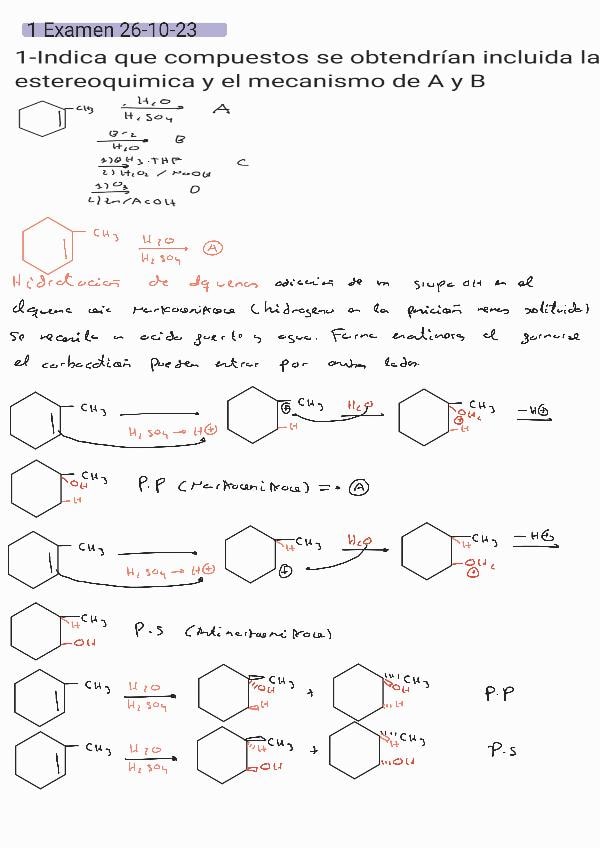 1 Examen 26-10-23
1-Indica que compuestos se obtendrían incluida la
estereoquimica y el mecanismo de A y B
CH3 H2O A
H2SO4
Br2 B
H2O
1) BH3·THF C
2) H2O2 / NaOH
1) O3 D
2) Zn/AcOH
CH3 H2O A
H2SO4
Hidratación de alquenos adición de un grupo OH en el
alqueno vía Markovnikov (hidrogeno en la posición menos sustituida)
Se necesita un acido fuerte y agua. Forma enantiomeros al formarse
el carbocatión pueden entrar por ambos lados.
CH3 H2SO4 → H⊕ ⊕ CH3 H H2O CH3 OH2 ⊕ H -H⊕
CH3 OH H P.P (Markovnikov) => A
CH3 H2SO4 → H⊕ CH3 H ⊕ H2O CH3 H OH2 ⊕ -H⊕
CH3 H OH P.S (Antimarkovnikov)
CH3 H2O CH3 OH H + CH3 OH H P.P
H2SO4
CH3 H2O CH3 H OH + CH3 H OH P.S
H2SO4